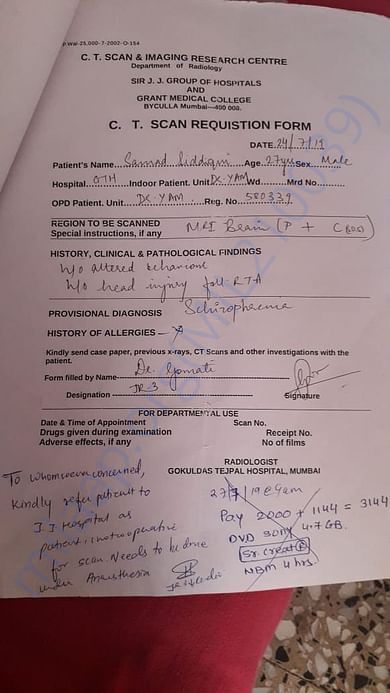 P.Wal-25,000-7-2002-O-154
C. T. SCAN & IMAGING RESEARCH CENTRE
Department of Radiology
SIR J. J. GROUP OF HOSPITALS
AND
GRANT MEDICAL COLLEGE
BYCULLA MUMBAI—400 008.
C. T. SCAN REQUISTION FORM
DATE 24/7/19
Patient's Name Samad Siddiqui Age 27yrs Sex Male
Hospital GTH Indoor Patient. Unit DC-YAM Wd Mrd No
OPD Patient. Unit DC-YAM Reg. No 580339
REGION TO BE SCANNED MRI Brain (P + C
Special instructions, if any
HISTORY, CLINICAL & PATHOLOGICAL FINDINGS
h/o altered behaviour
h/o head injury RTA
PROVISIONAL DIAGNOSIS Schizophrenia
HISTORY OF ALLERGIES –
Kindly send case paper, previous x-rays, CT Scans and other investigations with the
patient.
Form filled by Name Dr. Gomati
Designation JR-3 Signature
FOR DEPARTMENTAL USE
Date & Time of Appointment Scan No.
Drugs given during examination Receipt No.
Adverse effects, if any No of films
RADIOLOGIST
GOKULDAS TEJPAL HOSPITAL, MUMBAI
To whomsoever concerned,
Kindly refer patient to
J.J. Hospital as
patient is not cooperative
for scan. Needs to be done
under Anaesthesia
27/7/19 @ 9am
Pay 2000 + 1144 = 3144
DVD SONY 4.7 GB.
Sr. creat
NBM 4 hrs.